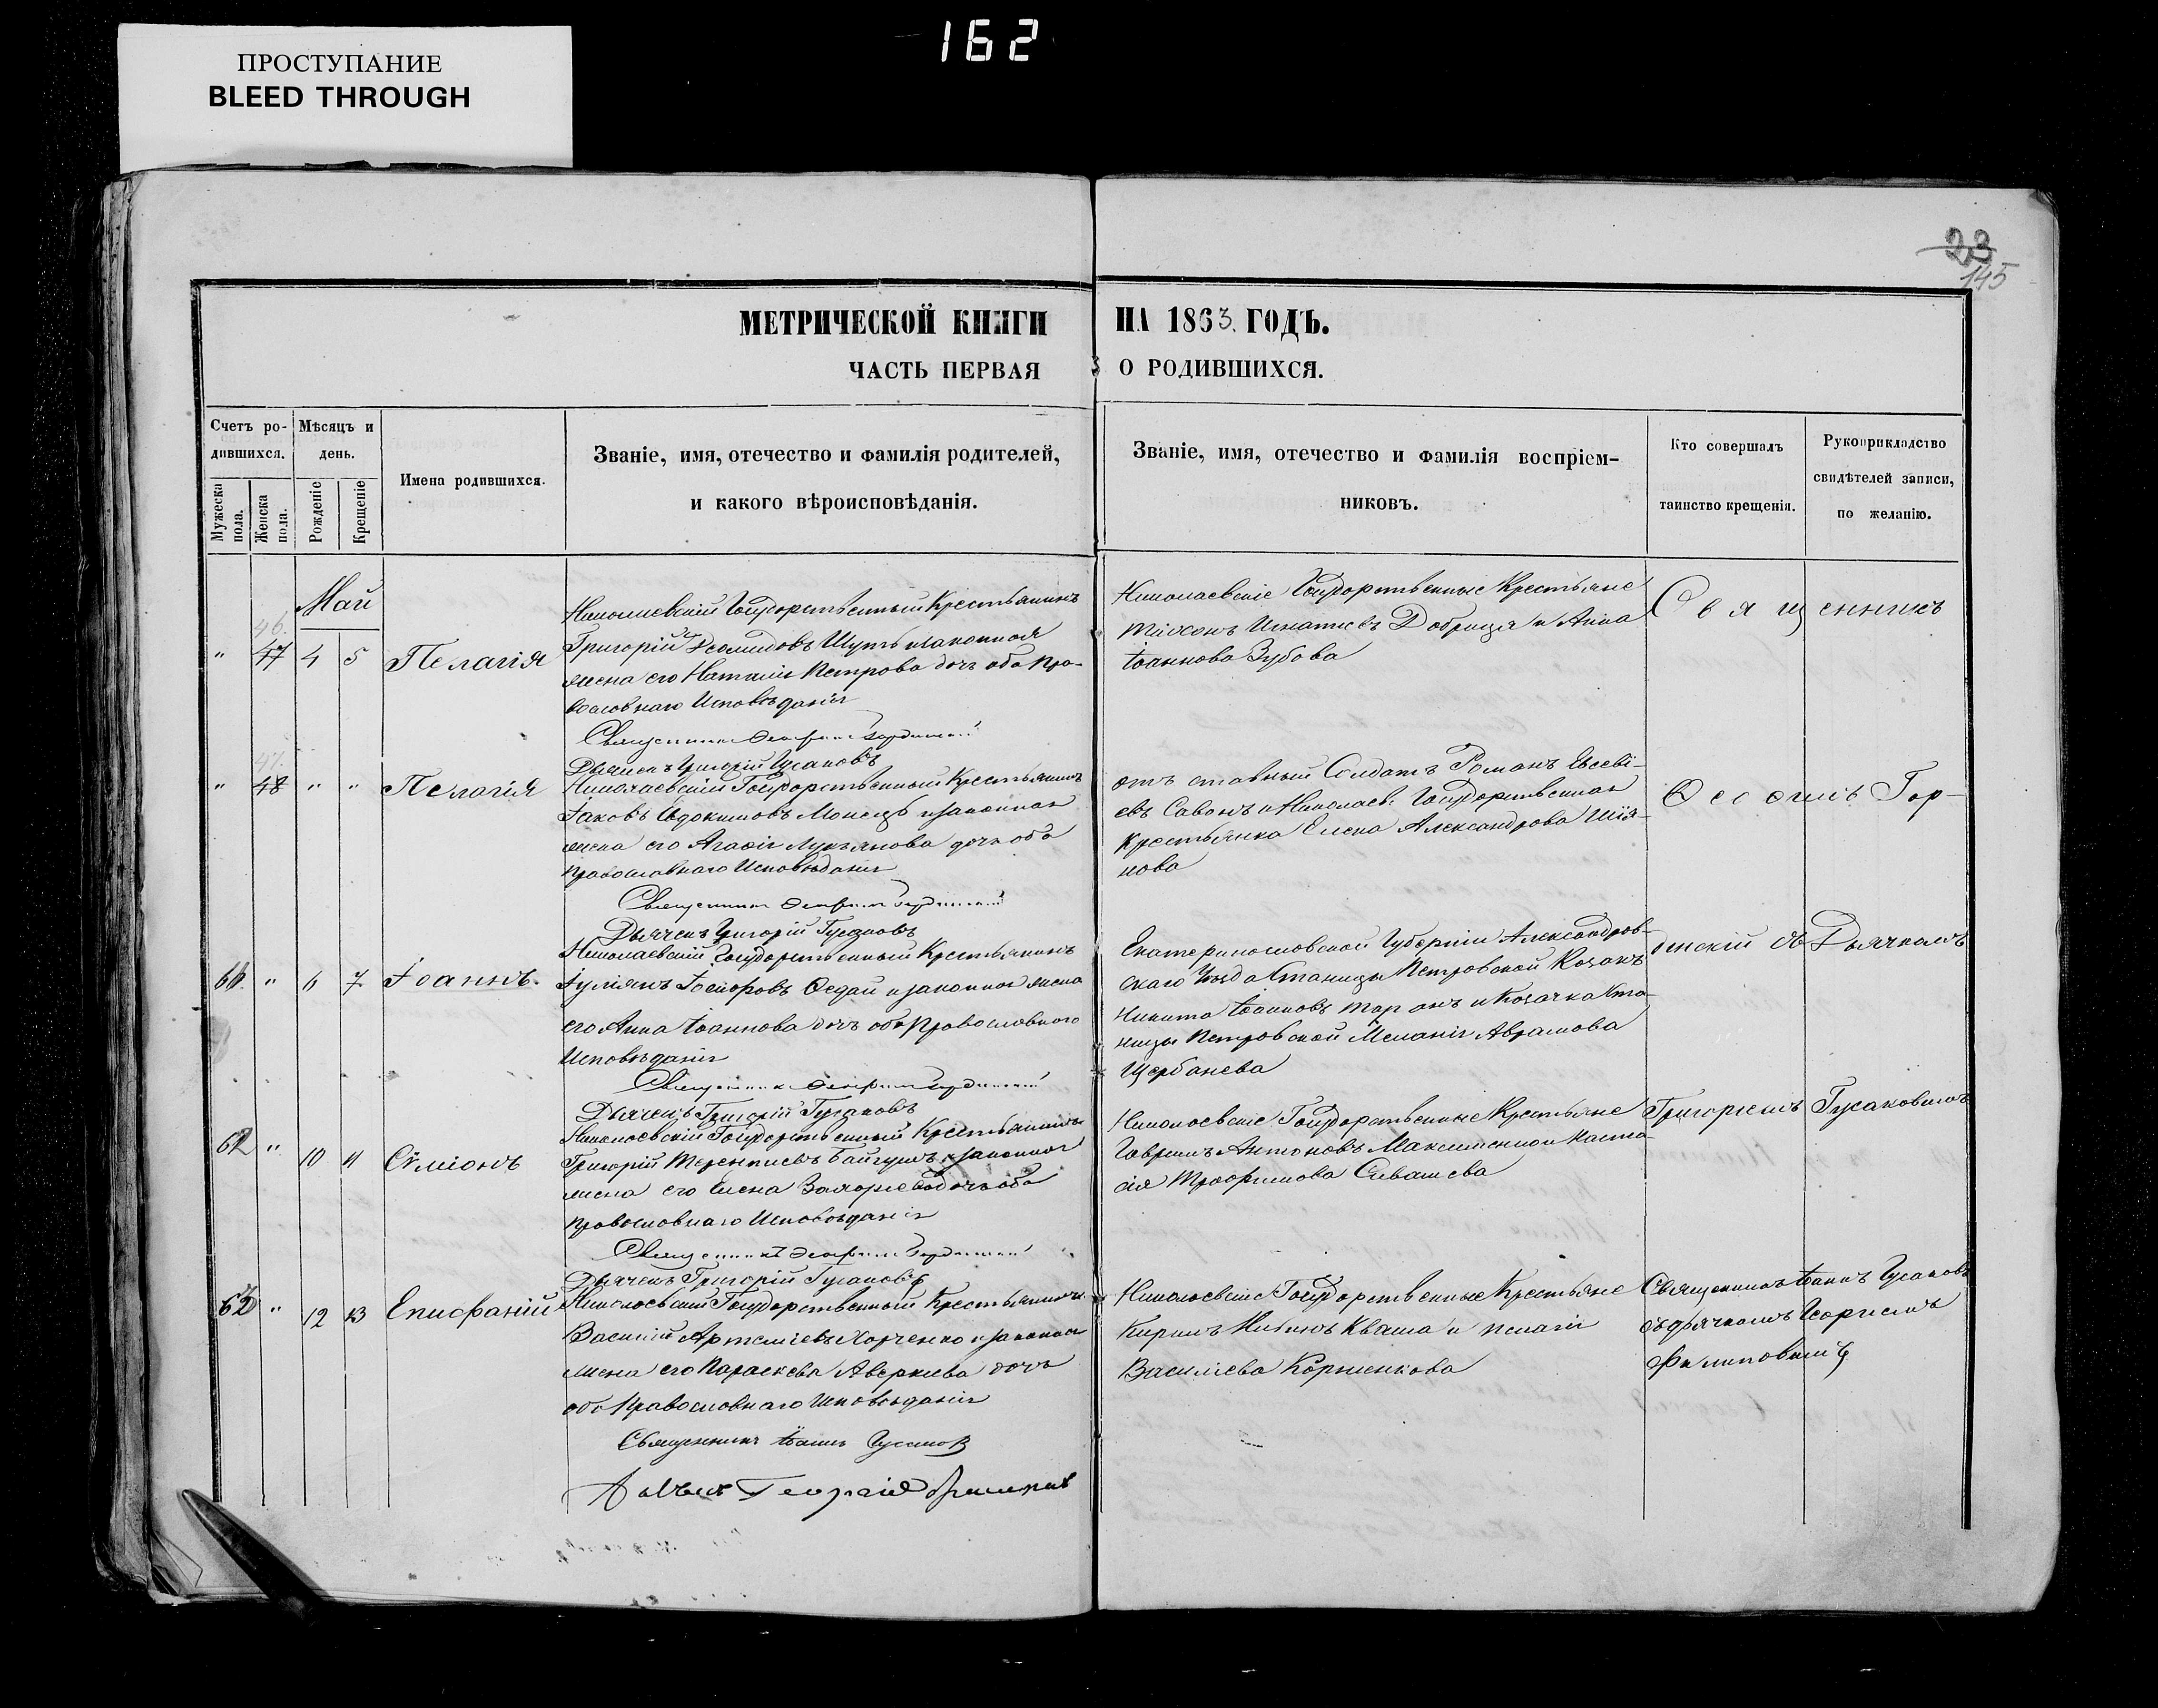 162
ПРОСТУПАНИЕ
BLEED THROUGH
23
145
МЕТРИЧЕСКОЙ КНИГИ НА 1863. ГОДЪ.
ЧАСТЬ ПЕРВАЯ О РОДИВШИХСЯ.
Счетъ ро-
дившихся.
Мужеска
пола.
Женска
пола.
Мѣсяцъ и
день.
Рожденіе
Крещеніе
Имена родившихся.
Званіе, имя, отечество и фамилія родителей,
и какого вѣроисповѣданія.
Званіе, имя, отечество и фамилія воспріем-
никовъ.
Кто совершалъ
таинство крещенія.
Рукоприкладство
свидѣтелей записи,
по желанію.
Май
46.
" 47 4 5 Пелагія
Николаевскій Государственный Крестьянинъ
Григорій Шутъ и законная
жена его Наталія Петрова дочь оба Пра-
вославнаго Исповѣданія
Священникъ
Дьячекъ Григорій Гусаковъ
Николаевскіе Государственные Крестьяне
Игнатіевъ Добрица и Анна
Іоаннова Зубова
Священникъ
47.
" 48 " " Пелагія
Николаевскій Государственный Крестьянинъ
Іаковъ Евдокимовъ и законная
жена его Агафія Лукьянова дочь оба
Православнаго Исповѣданія
Священникъ
Дьячекъ Григорій Гусаковъ
отъ ставный Солдатъ Романъ Евсеві-
евъ Савонъ и Николаев. Государственная
Крестьянка Елена Александрова Шія-
нова
Гор-
" 6 7 Іоаннъ.
Николаевскій Государственный Крестьянинъ
и законная жена
его Анна Іоаннова дочь оба Православнаго
Исповѣданія
Священникъ
Дьячекъ Григорій Гусаковъ
Екатеринославской Губерніи Александров-
скаго Уѣзда Станицы Петровской Козакъ
Никита Іоанновъ Таранъ и Козачка Ста-
ницы Петровской Меланія Аврамова
Щербанева
динскій съ Дьячкомъ
62 " 10 11 Сѵміонъ
Николаевскій Государственный Крестьянинъ
Григорій Терентіевъ Байгушъ и законная
жена его Елена дочь оба
Православнаго Исповѣданія
Священникъ
Дьячекъ Григорій Гусаковъ
Николаевскіе Государственные Крестьяне
Гавріилъ Антоновъ Максименко и Наста-
сія Трофимова Сивашева
Григоріемъ Гусаковымъ
" 12 13 Епифаній
Николаевскій Государственный Крестьянинъ
Василій Артеміевъ Харченко и законная
жена его Параскева Аверкіева дочь
оба Православнаго Исповѣданія
Священникъ Іоаннъ Гусаковъ
Николаевскіе Государственные Крестьяне
Кирилъ Кваша и Пелагія
Василіева Корніенкова
Священникъ Іоаннъ Гусаковъ
съ дьячкомъ Георгіемъ
Филиповымъ